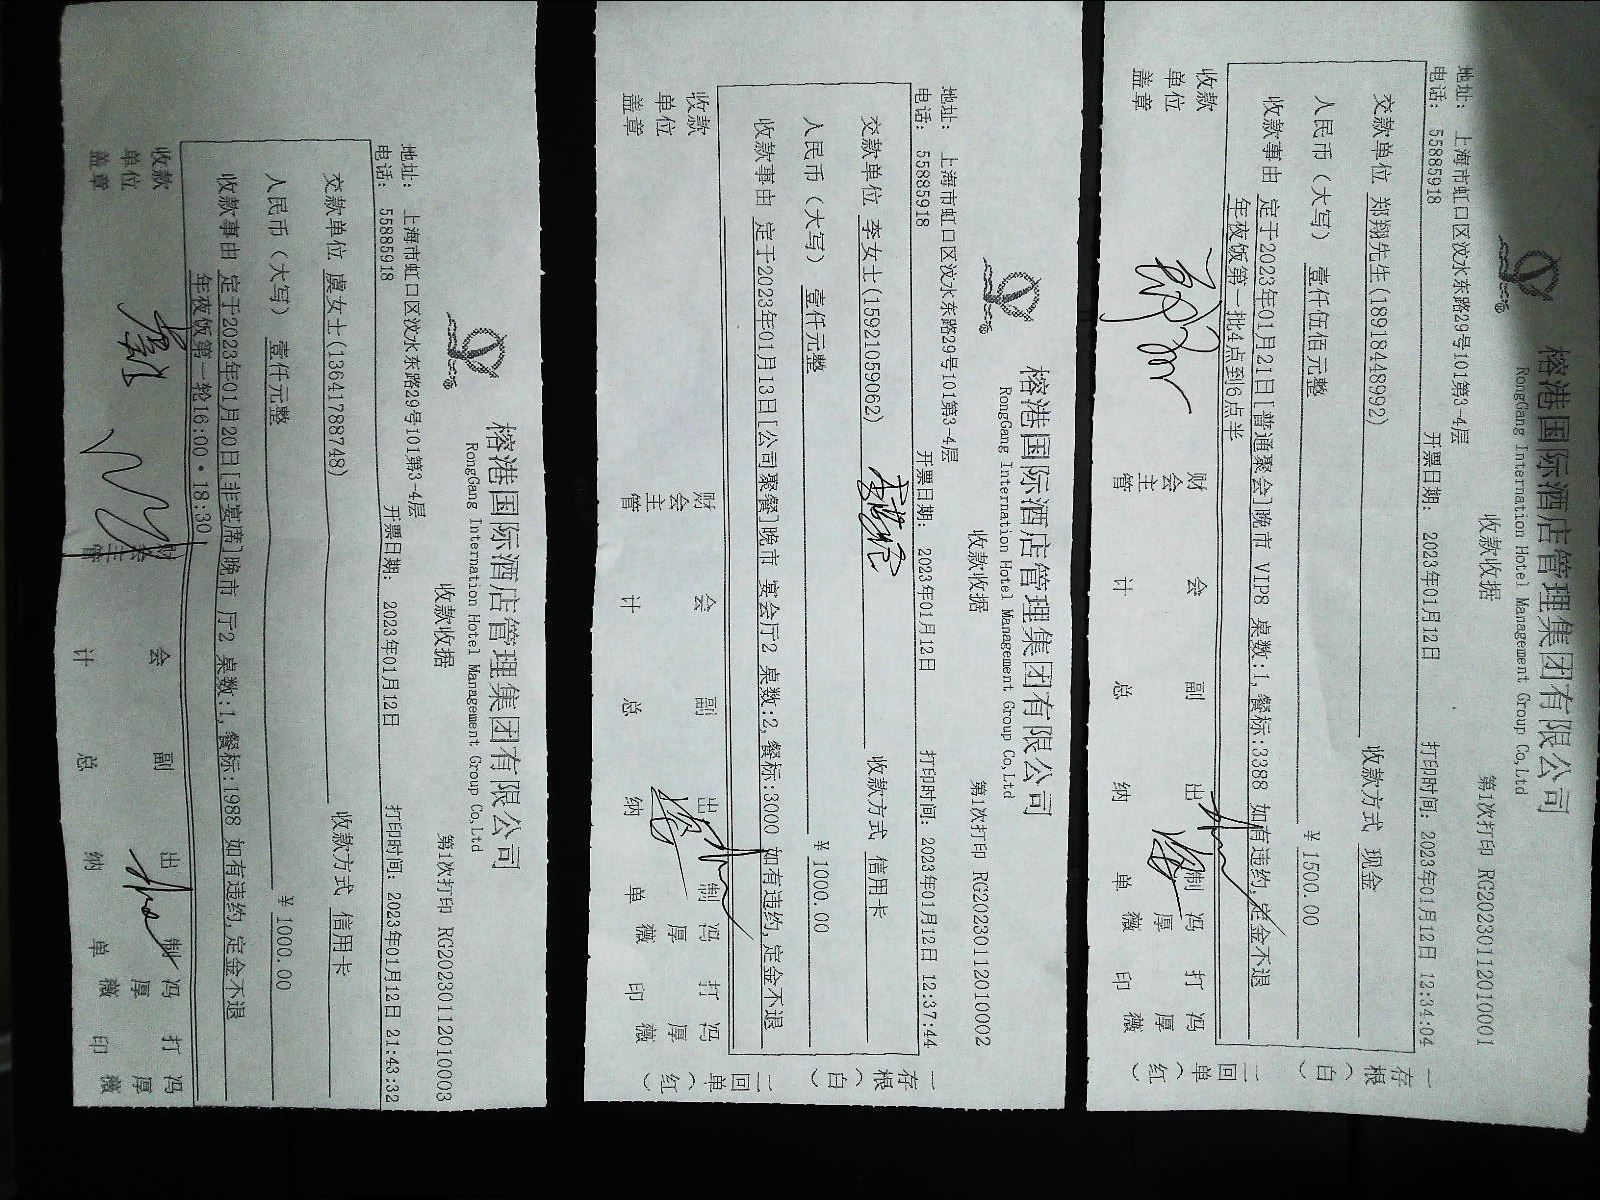 榕港国际酒店管理集团有限公司
RongGang International Hotel Management Group Co,Ltd
收款收据
第1次打印 RG20230112010001
地址: 上海市虹口区汶水东路29号101第3-4层
电话: 55885918
开票日期: 2023年01月12日
打印时间: 2023年01月12日 12:34:04
交款单位 郑翔先生(18918448992)
收款方式 现金
人民币(大写) 壹仟伍佰元整
¥ 1500.00
收款事由 定于2023年01月21日[普通聚会]晚市 VIP8 桌数:1,餐标:3388 如有违约,定金不退
年夜饭第一批4点到6点半
收款单位盖章
财会主管
会计
副总
出纳
制单
冯厚薇
打印
冯厚薇
一存根(白)
二回单(红)
榕港国际酒店管理集团有限公司
RongGang International Hotel Management Group Co,Ltd
收款收据
第1次打印 RG20230112010002
地址: 上海市虹口区汶水东路29号101第3-4层
电话: 55885918
开票日期: 2023年01月12日
打印时间: 2023年01月12日 12:37:44
交款单位 李女士(15921059062)
收款方式 信用卡
人民币(大写) 壹仟元整
¥ 1000.00
收款事由 定于2023年01月13日[公司聚餐]晚市 宴会厅2 桌数:2,餐标:3000 如有违约,定金不退
收款单位盖章
财会主管
会计
副总
出纳
制单
冯厚薇
打印
冯厚薇
一存根(白)
二回单(红)
榕港国际酒店管理集团有限公司
RongGang International Hotel Management Group Co,Ltd
收款收据
第1次打印 RG20230112010003
地址: 上海市虹口区汶水东路29号101第3-4层
电话: 55885918
开票日期: 2023年01月12日
打印时间: 2023年01月12日 21:43:32
交款单位 虞女士(13641788748)
收款方式 信用卡
人民币(大写) 壹仟元整
¥ 1000.00
收款事由 定于2023年01月20日[非宴席]晚市 厅2 桌数:1,餐标:1988 如有违约,定金不退
年夜饭第一轮16:00·18:30
收款单位盖章
财会主管
会计
副总
出纳
制单
冯厚薇
打印
冯厚薇